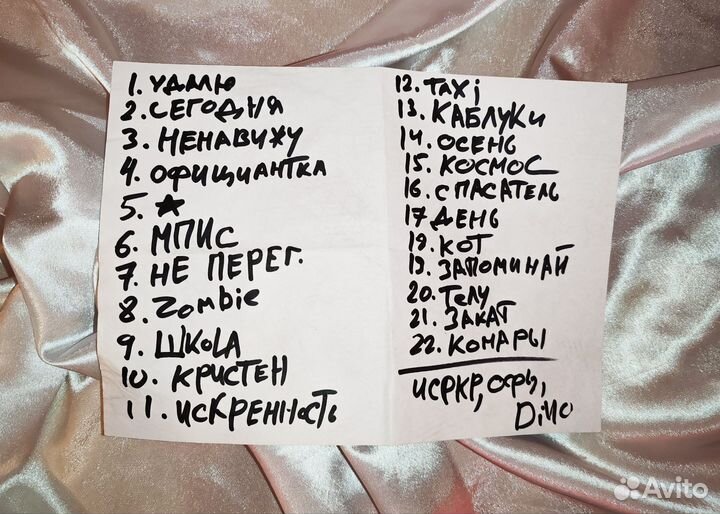 1. УДАЛЮ
2. СЕГОДНЯ
3. НЕНАВИЖУ
4. ОФИЦИАНТКА
5. ★
6. МПИС
7. НЕ ПЕРЕГ.
8. Zombie
9. ШКОLА
10. КРИСТЕН
11. ИСКРЕННОСТЬ
12. TAXi
13. КАБЛУКИ
14. ОСЕНЬ
15. КОСМОС
16. СПАСАТЕЛЬ
17 ДЕНЬ
18. КОТ
19. ЗАПОМИНАЙ
20. ТЕЛУ
21. ЗАКАТ
22. КОМАРЫ
Avito